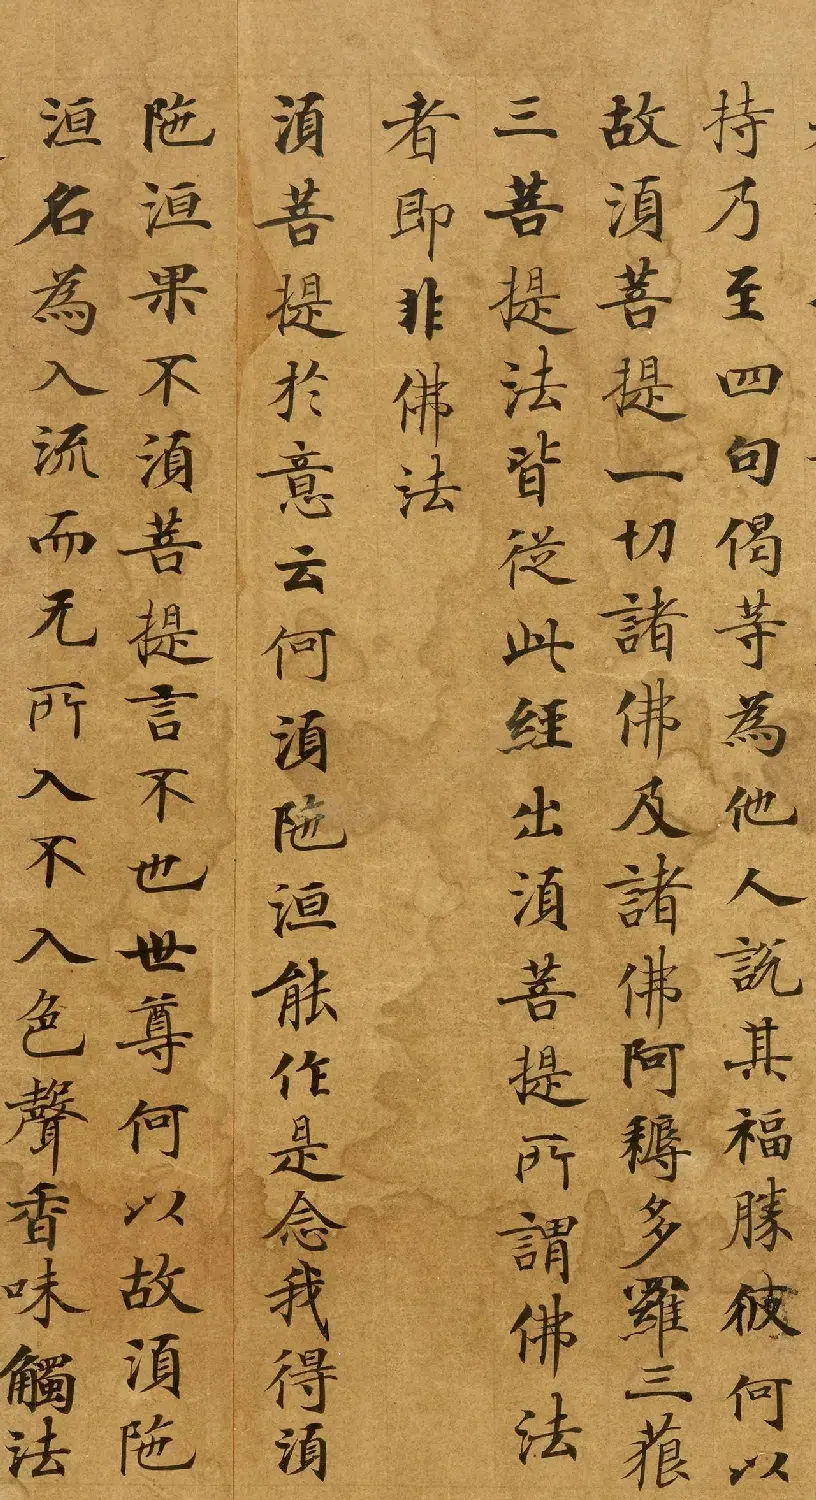 持乃至四句偈等為他人說其福勝彼何以
故湏菩提一切諸佛及諸佛阿耨多羅三藐
三菩提法皆從此經出湏菩提所謂佛法
者即非佛法
湏菩提於意云何湏陁洹能作是念我得湏
陁洹果不湏菩提言不也世尊何以故湏陁
洹名為入流而无所入不入色聲香味觸法